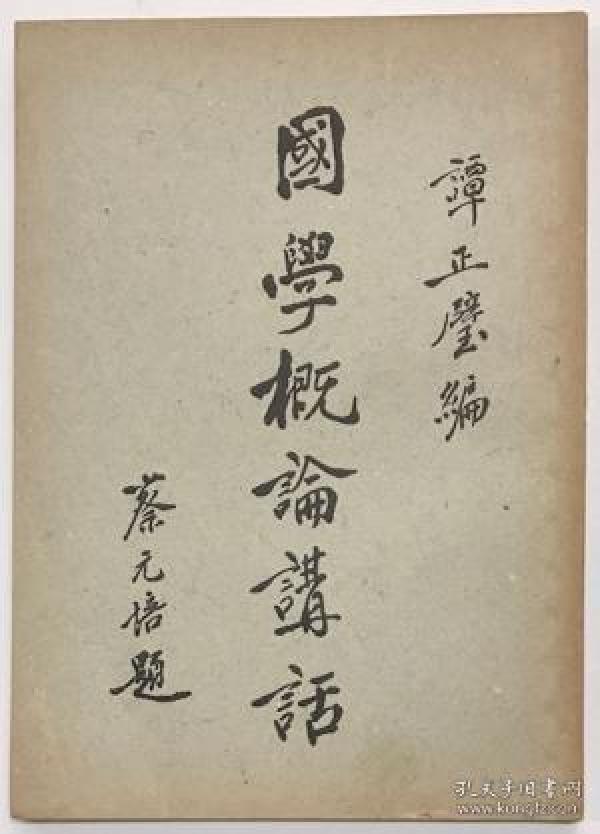 譚正璧編
國學概論講話
蔡元培題
孔夫子旧书网
www.kongfz.com